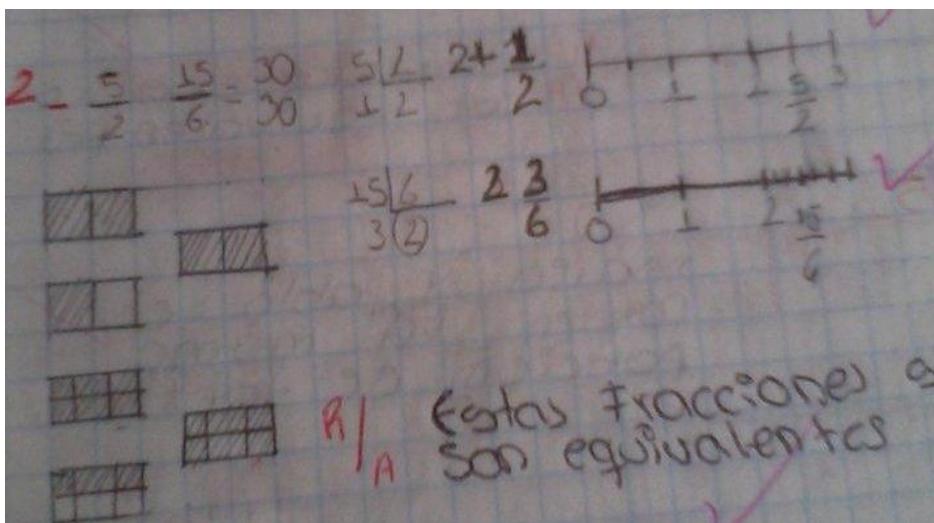 2- 5/2 15/6 = 30/30 5 2 2+ 1/2 0 1 2 5/2 3
1 2
15 6 2 3/6 0 1 2 15/6
3 2
R/A Estas fracciones
son equivalentes